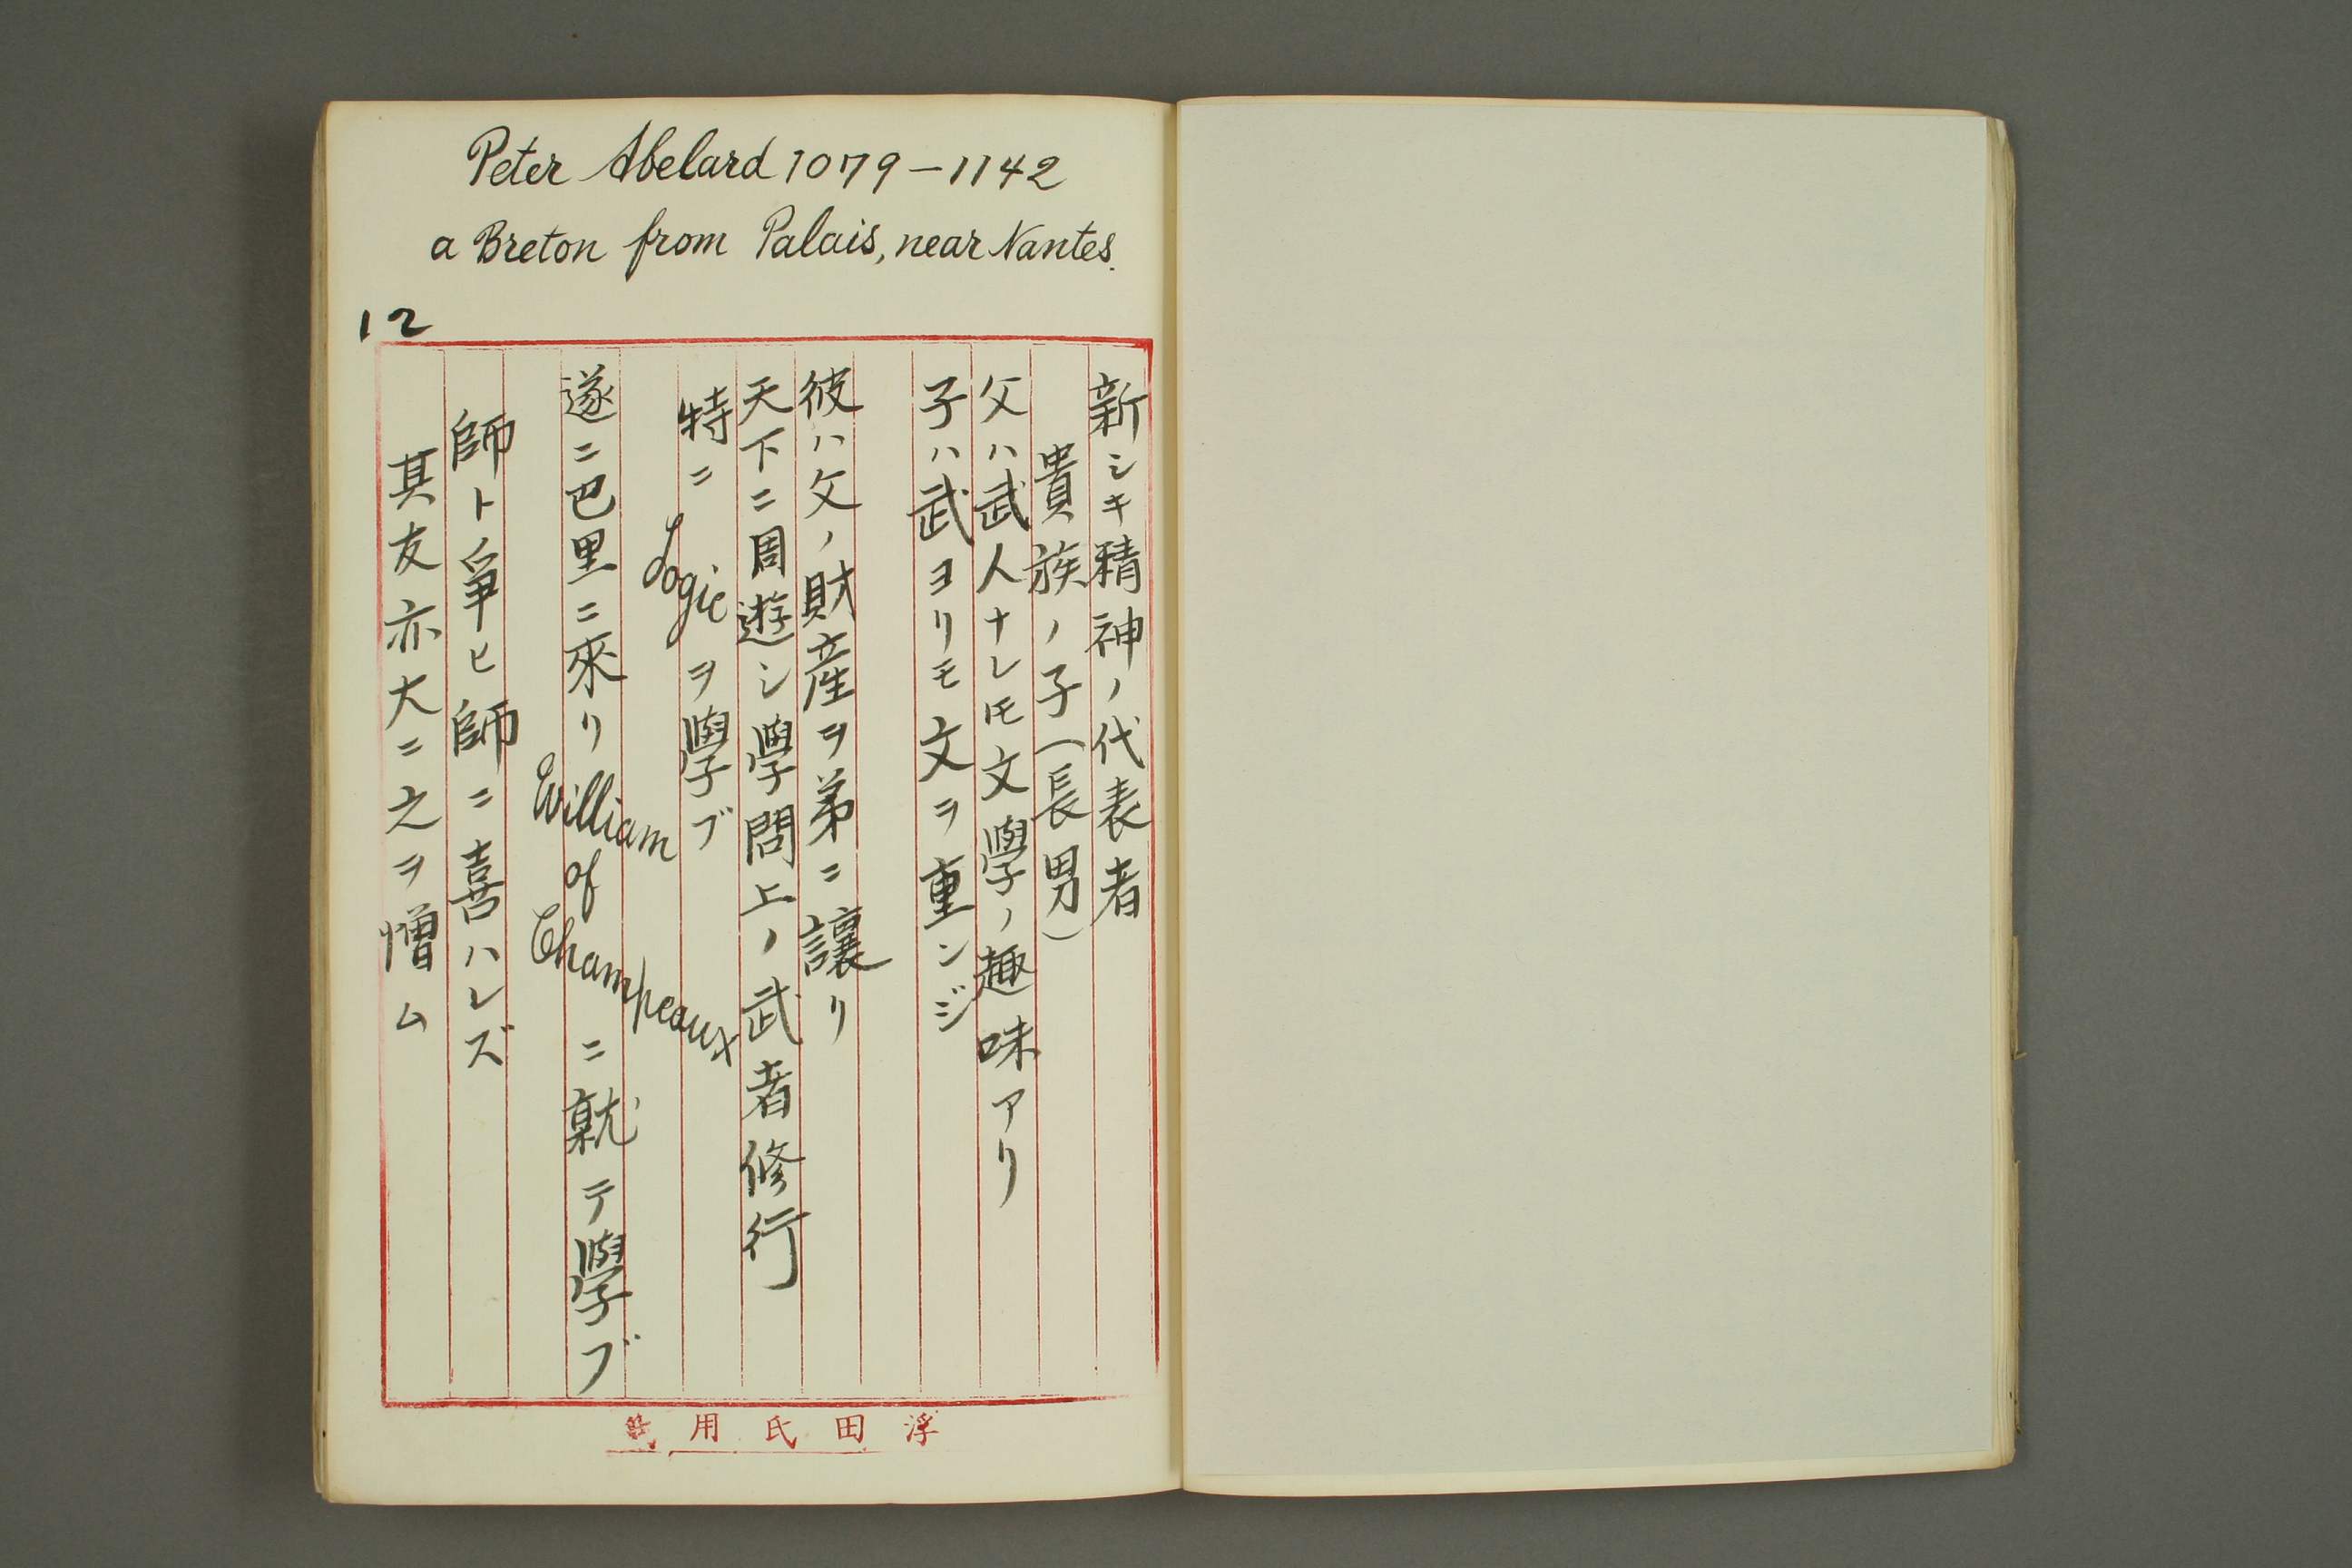 Peter Abelard 1079-1142
a Breton from Palais, near Nantes.
12
新シキ精神ノ代表者
貴族ノ子(長男)
父ハ武人ナレ𪜈文學ノ趣味アリ
子ハ武ヨリモ文ヲ重ンジ
彼ハ父ノ財産ヲ弟ニ讓リ
天下ニ周遊シ學問上ノ武者修行
特ニ Logic ヲ學ブ
遂ニ巴里ニ來リ William of Champeaux ニ就テ學ブ
師ト爭ヒ師ニ喜ハレズ
其友亦大ニ之ヲ憎ム
浮田氏用